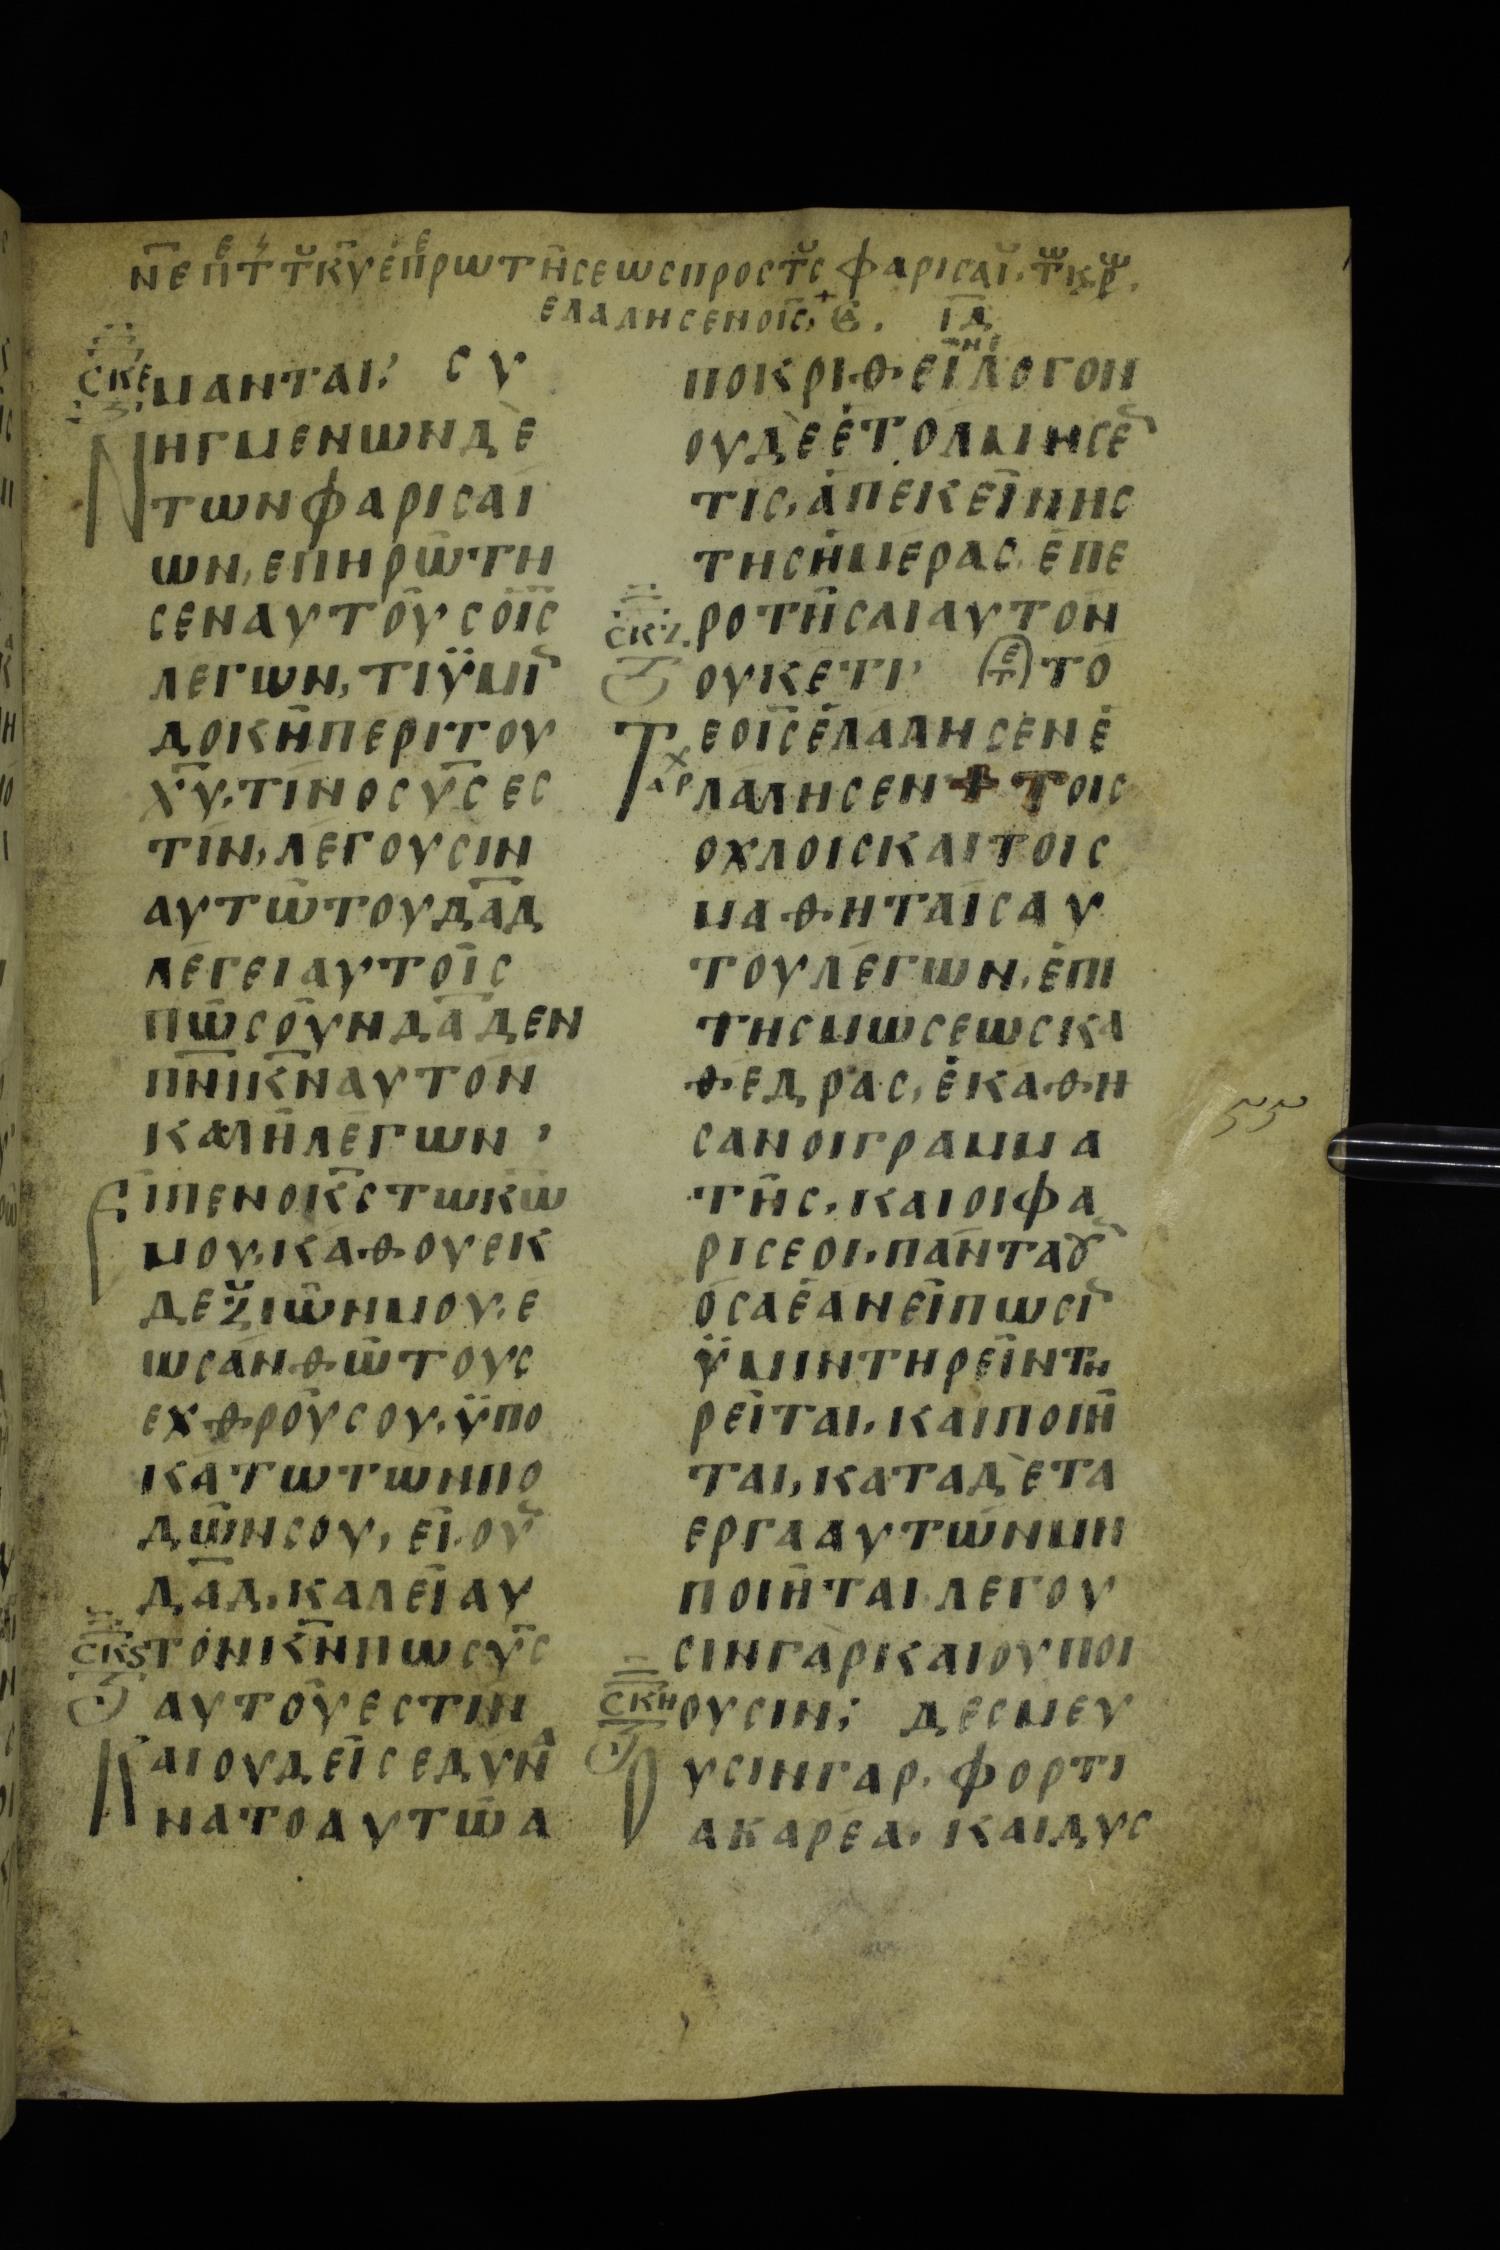 ΝΕ ΠΕΡΙ ΤΗΣ ΤΟΥ ΚΥ ΕΠΕΡΩΤΗΣΕΩΣ ΠΡΟΣ ΤΟΥΣ ΦΑΡΙΣΑΙ
ΕΛΑΛΗΣΕΝ Ο ΙΣ
ΣΚΕ
ΜΑΝΤΑΙ: ΣΥ
ΝΗΓΜΕΝΩΝ ΔΕ
ΤΩΝ ΦΑΡΙΣΑΙ
ΩΝ, ΕΠΗΡΩΤΗ
ΣΕΝ ΑΥΤΟΥΣ Ο ΙΣ
ΛΕΓΩΝ, ΤΙ ΫΜΙ
ΔΟΚΗ ΠΕΡΙ ΤΟΥ
ΧΥ. ΤΙΝΟΣ ΥΣ ΕΣ
ΤΙΝ, ΛΕΓΟΥΣΙΝ
ΑΥΤΩ ΤΟΥ ΔΑΔ
ΛΕΓΕΙ ΑΥΤΟΙΣ
ΠΩΣ ΟΥΝ ΔΑΔ ΕΝ
ΠΝΙ ΚΝ ΑΥΤΟΝ
ΚΑΛΗ ΛΕΓΩΝ,
ΕΙΠΕΝ Ο ΚΣ ΤΩ ΚΩ
ΜΟΥ, ΚΑΘΟΥ ΕΚ
ΔΕΞΙΩΝ ΜΟΥ. Ε
ΩΣ ΑΝ ΘΩ ΤΟΥΣ
ΕΧΘΡΟΥΣ ΟΥ. ΫΠΟ
ΚΑΤΩ ΤΩΝ ΠΟ
ΔΩΝ ΣΟΥ, ΕΙ ΟΥ
ΔΑΔ, ΚΑΛΕΙ ΑΥ
ΣΚϚ
ΤΟΝ ΚΝ ΠΩΣ ΥΣ
ΑΥΤΟΥ ΕΣΤΙΝ
ΚΑΙ ΟΥΔΕΙΣ ΕΔΥΝΑ
ΝΑΤΟ ΑΥΤΩ Α
ΙΔ
ΠΟΚΡΙΘΕΙΝΕ ΛΟΓΟΝ
ΟΥΔΕ ΕΤΟΛΜΗΣΕ
ΤΙΣ, ΑΠ ΕΚΕΙΝΗΣ
ΤΗΣ ΗΜΕΡΑΣ. ΕΠΕ
ΣΚΖ
ΡΟΤΗΣΑΙ ΑΥΤΟΝ
ΟΥΚΕΤΙ, ΤΟ
ΤΕ Ο ΙΣ ΕΛΑΛΗΣΕΝ Ε
ΑΡΧ
ΛΑΛΗΣΕΝ + ΤΟΙΣ
ΟΧΛΟΙΣ ΚΑΙ ΤΟΙΣ
ΜΑΘΗΤΑΙΣ ΑΥ
ΤΟΥ ΛΕΓΩΝ, ΕΠΙ
ΤΗΣ ΜΩΣΕΩΣ ΚΑ
ΘΕΔΡΑΣ, ΕΚΑΘΗ
ΣΑΝ ΟΙ ΓΡΑΜΜΑ
ΤΗΣ, ΚΑΙ ΟΙ ΦΑ
ΡΙΣΕΟΙ, ΠΑΝΤΑ ΟΥ
ΟΣΑ ΕΑΝ ΕΙΠΩΣΙ
ΫΜΙΝ ΤΗΡΕΙΝ ΤΗ
ΡΕΙΤΑΙ, ΚΑΙ ΠΟΙΗ
ΤΑΙ, ΚΑΤΑ ΔΕ ΤΑ
ΕΡΓΑ ΑΥΤΩΝ ΜΗ
ΠΟΙΗΤΑΙ ΛΕΓΟΥ
ΣΙΝ ΓΑΡ ΚΑΙ ΟΥ ΠΟΙ
ΣΚΗ
ΟΥΣΙΝ; ΔΕΣΜΕΥ
ΥΣΙΝ ΓΑΡ. ΦΟΡΤΙ
Α ΚΑΡΕΑ, ΚΑΙ ΔΥΣ